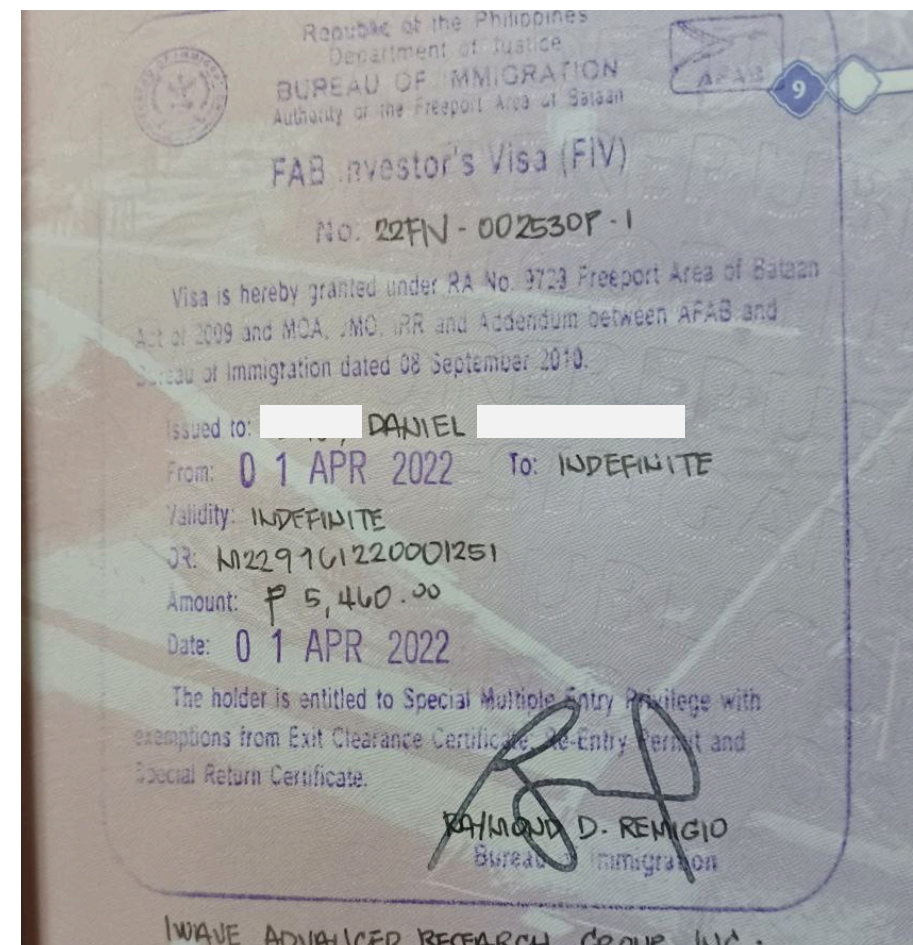 Republic of the Philippines
Department of Justice
BUREAU OF IMMIGRATION
Authority of the Freeport Area of Bataan
AFAB
9
FAB Investor's Visa (FIV)
No. 22FIV - 002530P - 1
Visa is hereby granted under RA No. 9728 Freeport Area of Bataan
Act of 2009 and MOA, JMC, IRR and Addendum between AFAB and
Bureau of Immigration dated 08 September 2010.
Issued to: DANIEL
From: 01 APR 2022 To: INDEFINITE
Validity: INDEFINITE
OR: M229161220001251
Amount: ₱ 5,460.00
Date: 01 APR 2022
The holder is entitled to Special Multiple Entry Privilege with
exemptions from Exit Clearance Certificate, Re-Entry Permit and
Special Return Certificate.
RAYMOND D. REMIGIO
Bureau of Immigration
IWAVE ADVANCED RESEARCH GROUP INC.